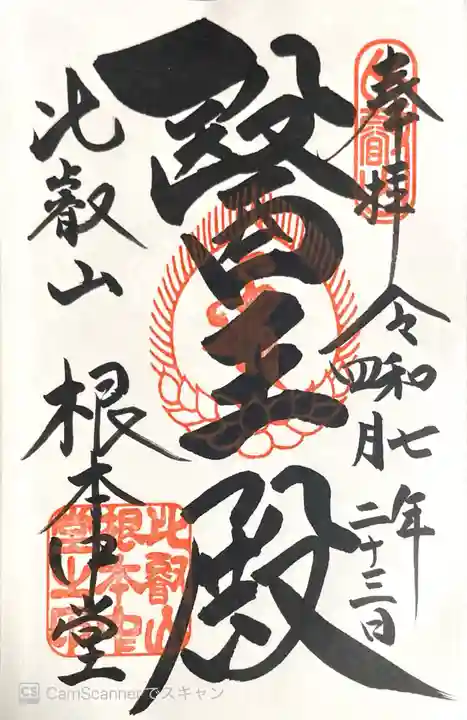 奉拝
令和七年
四月二十三日
醫王殿
比叡山 根本中堂
比叡山
根本中
堂之印
CS CamScannerでスキャン